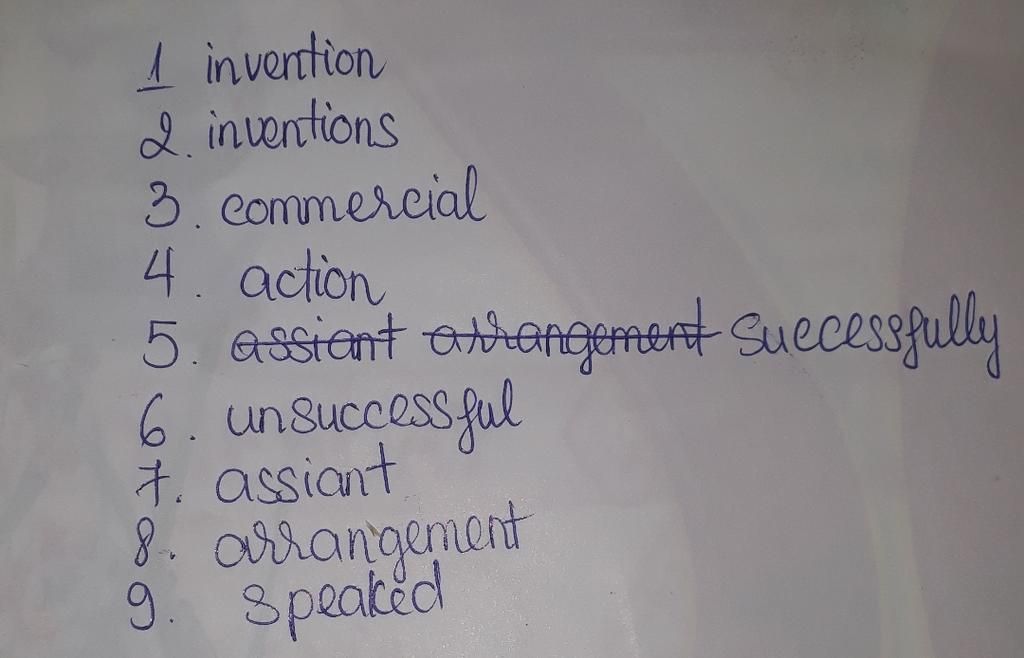 1 invention
2. inventions
3. commercial
4. action
5. assiant arrangement successfully
6. unsuccessful
7. assiant
8. arrangement
9. speaked